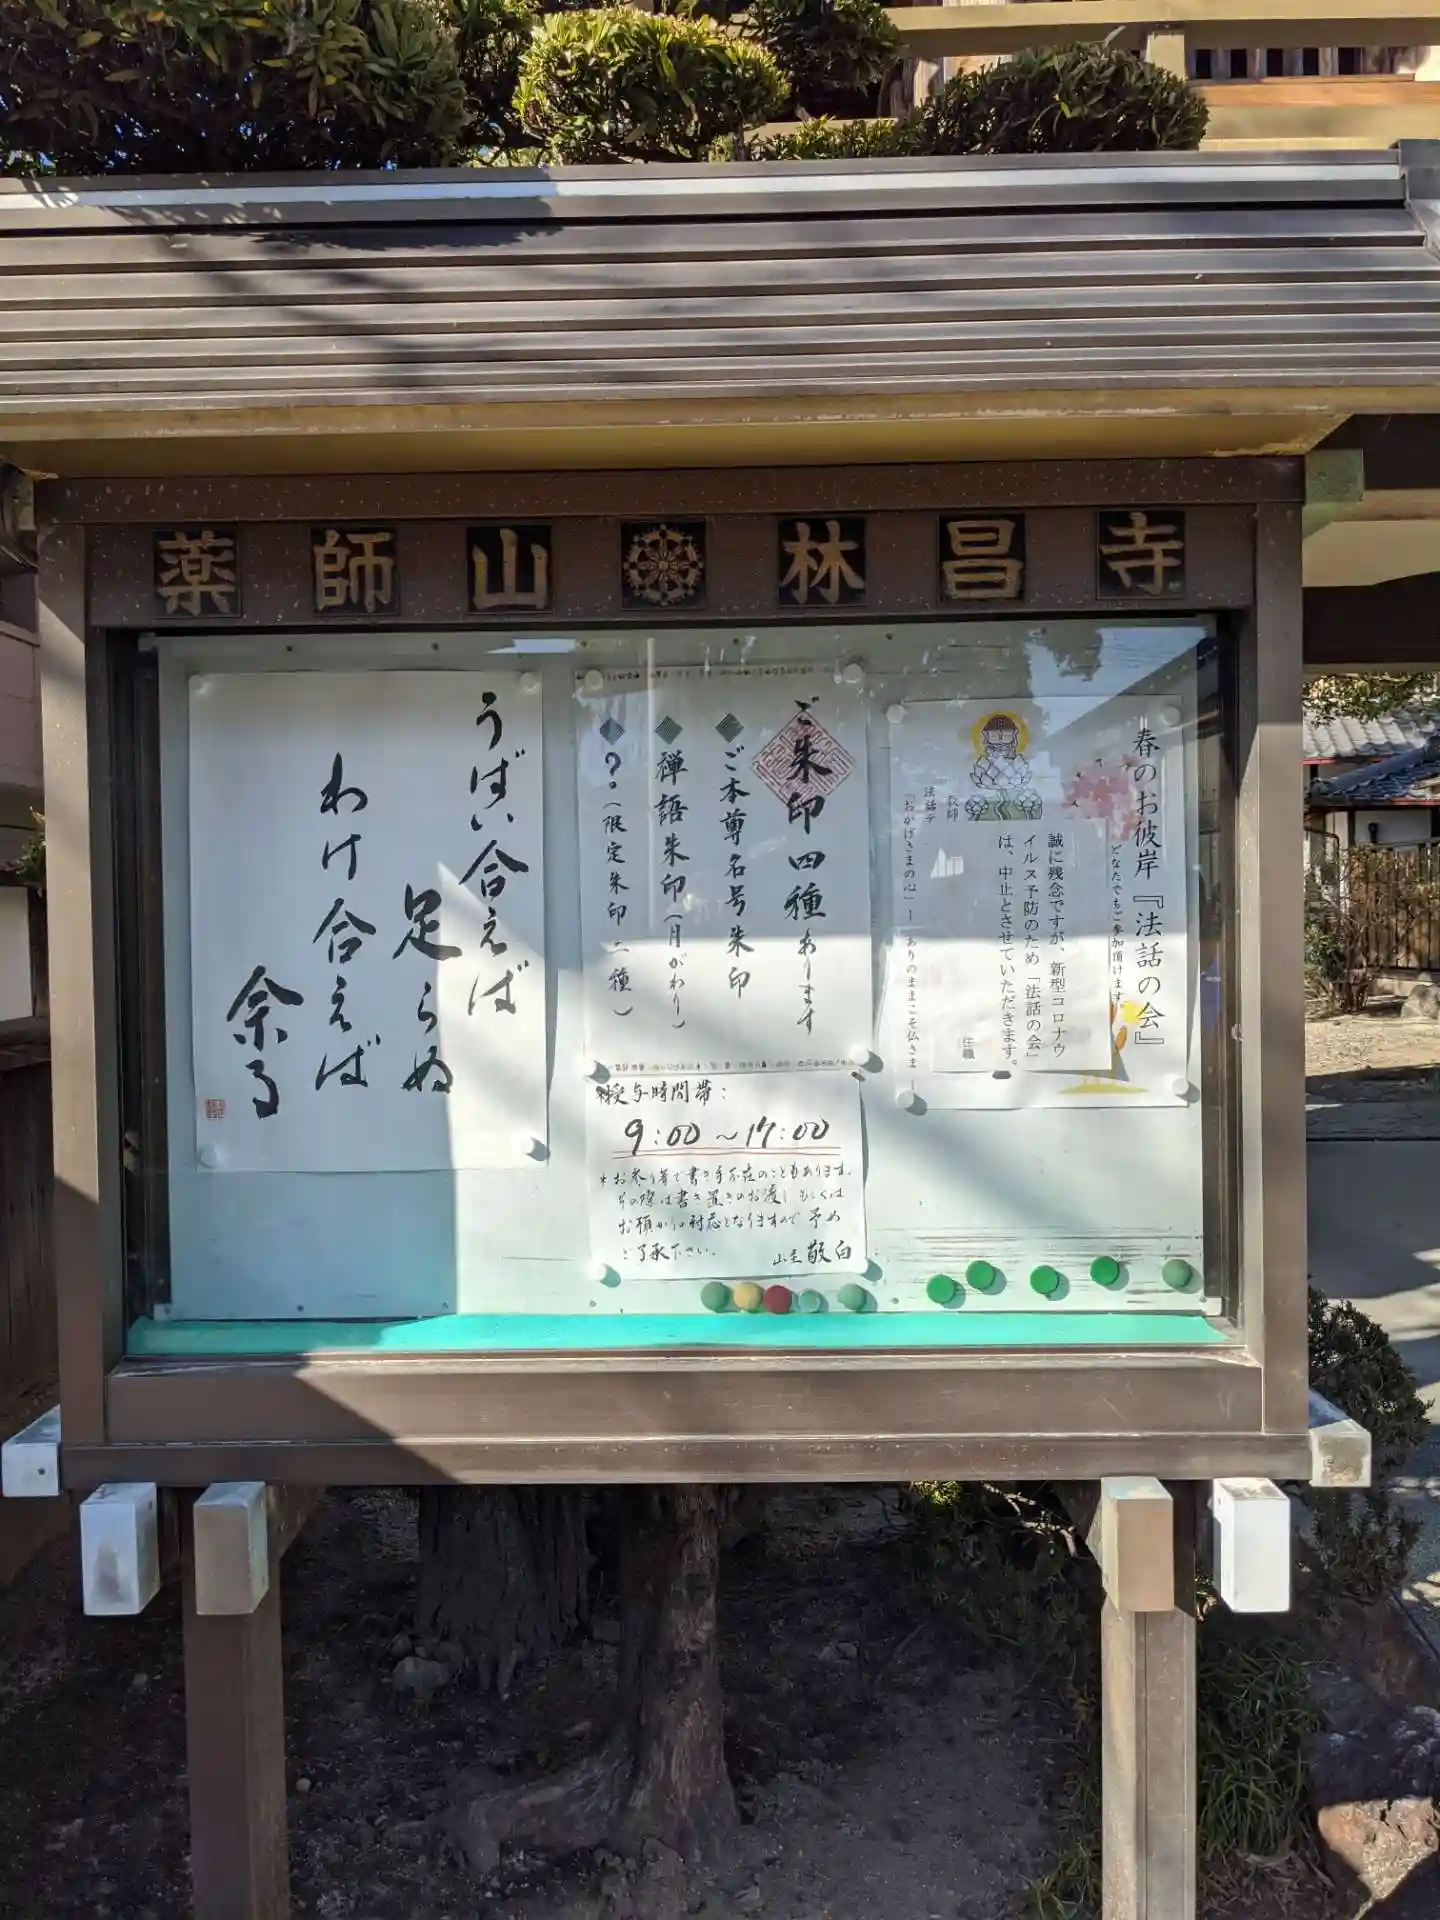 薬師山 林昌寺
春のお彼岸『法話の会』
どなたでもご参加頂けます。
誠に残念ですが、新型コロナウ
イルス予防のため「法話の会」
は、中止とさせていただきます。
住職
教師
法話テ
「おかげさまの心」ーありのままこそ仏さまー
ご朱印四種あります
◆ご本尊名号朱印
◆禅語朱印(月がわり)
◆?(限定朱印二種)
授与時間帯:
9:00~17:00
*お参り等で書き手不在のこともあります。
その際は書き置きのお渡しもしくは
お預かり対応となりますので予め
ご了承下さい。
山主 敬白
うばい合えば
足らぬ
わけ合えば
余る